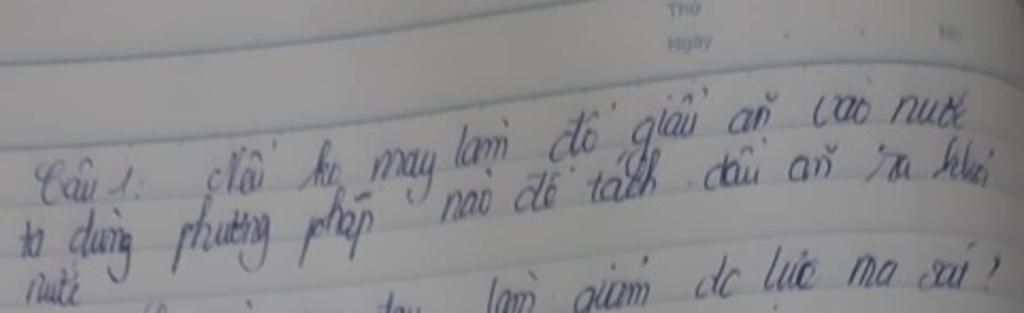 Thứ
Ngày
No
Câu 1: Nếu ko may làm đổ giầu ăn vào nước
ta dùng phương pháp nào để tách dầu ăn ra khỏi
nước
làm giảm đc lực ma sát?